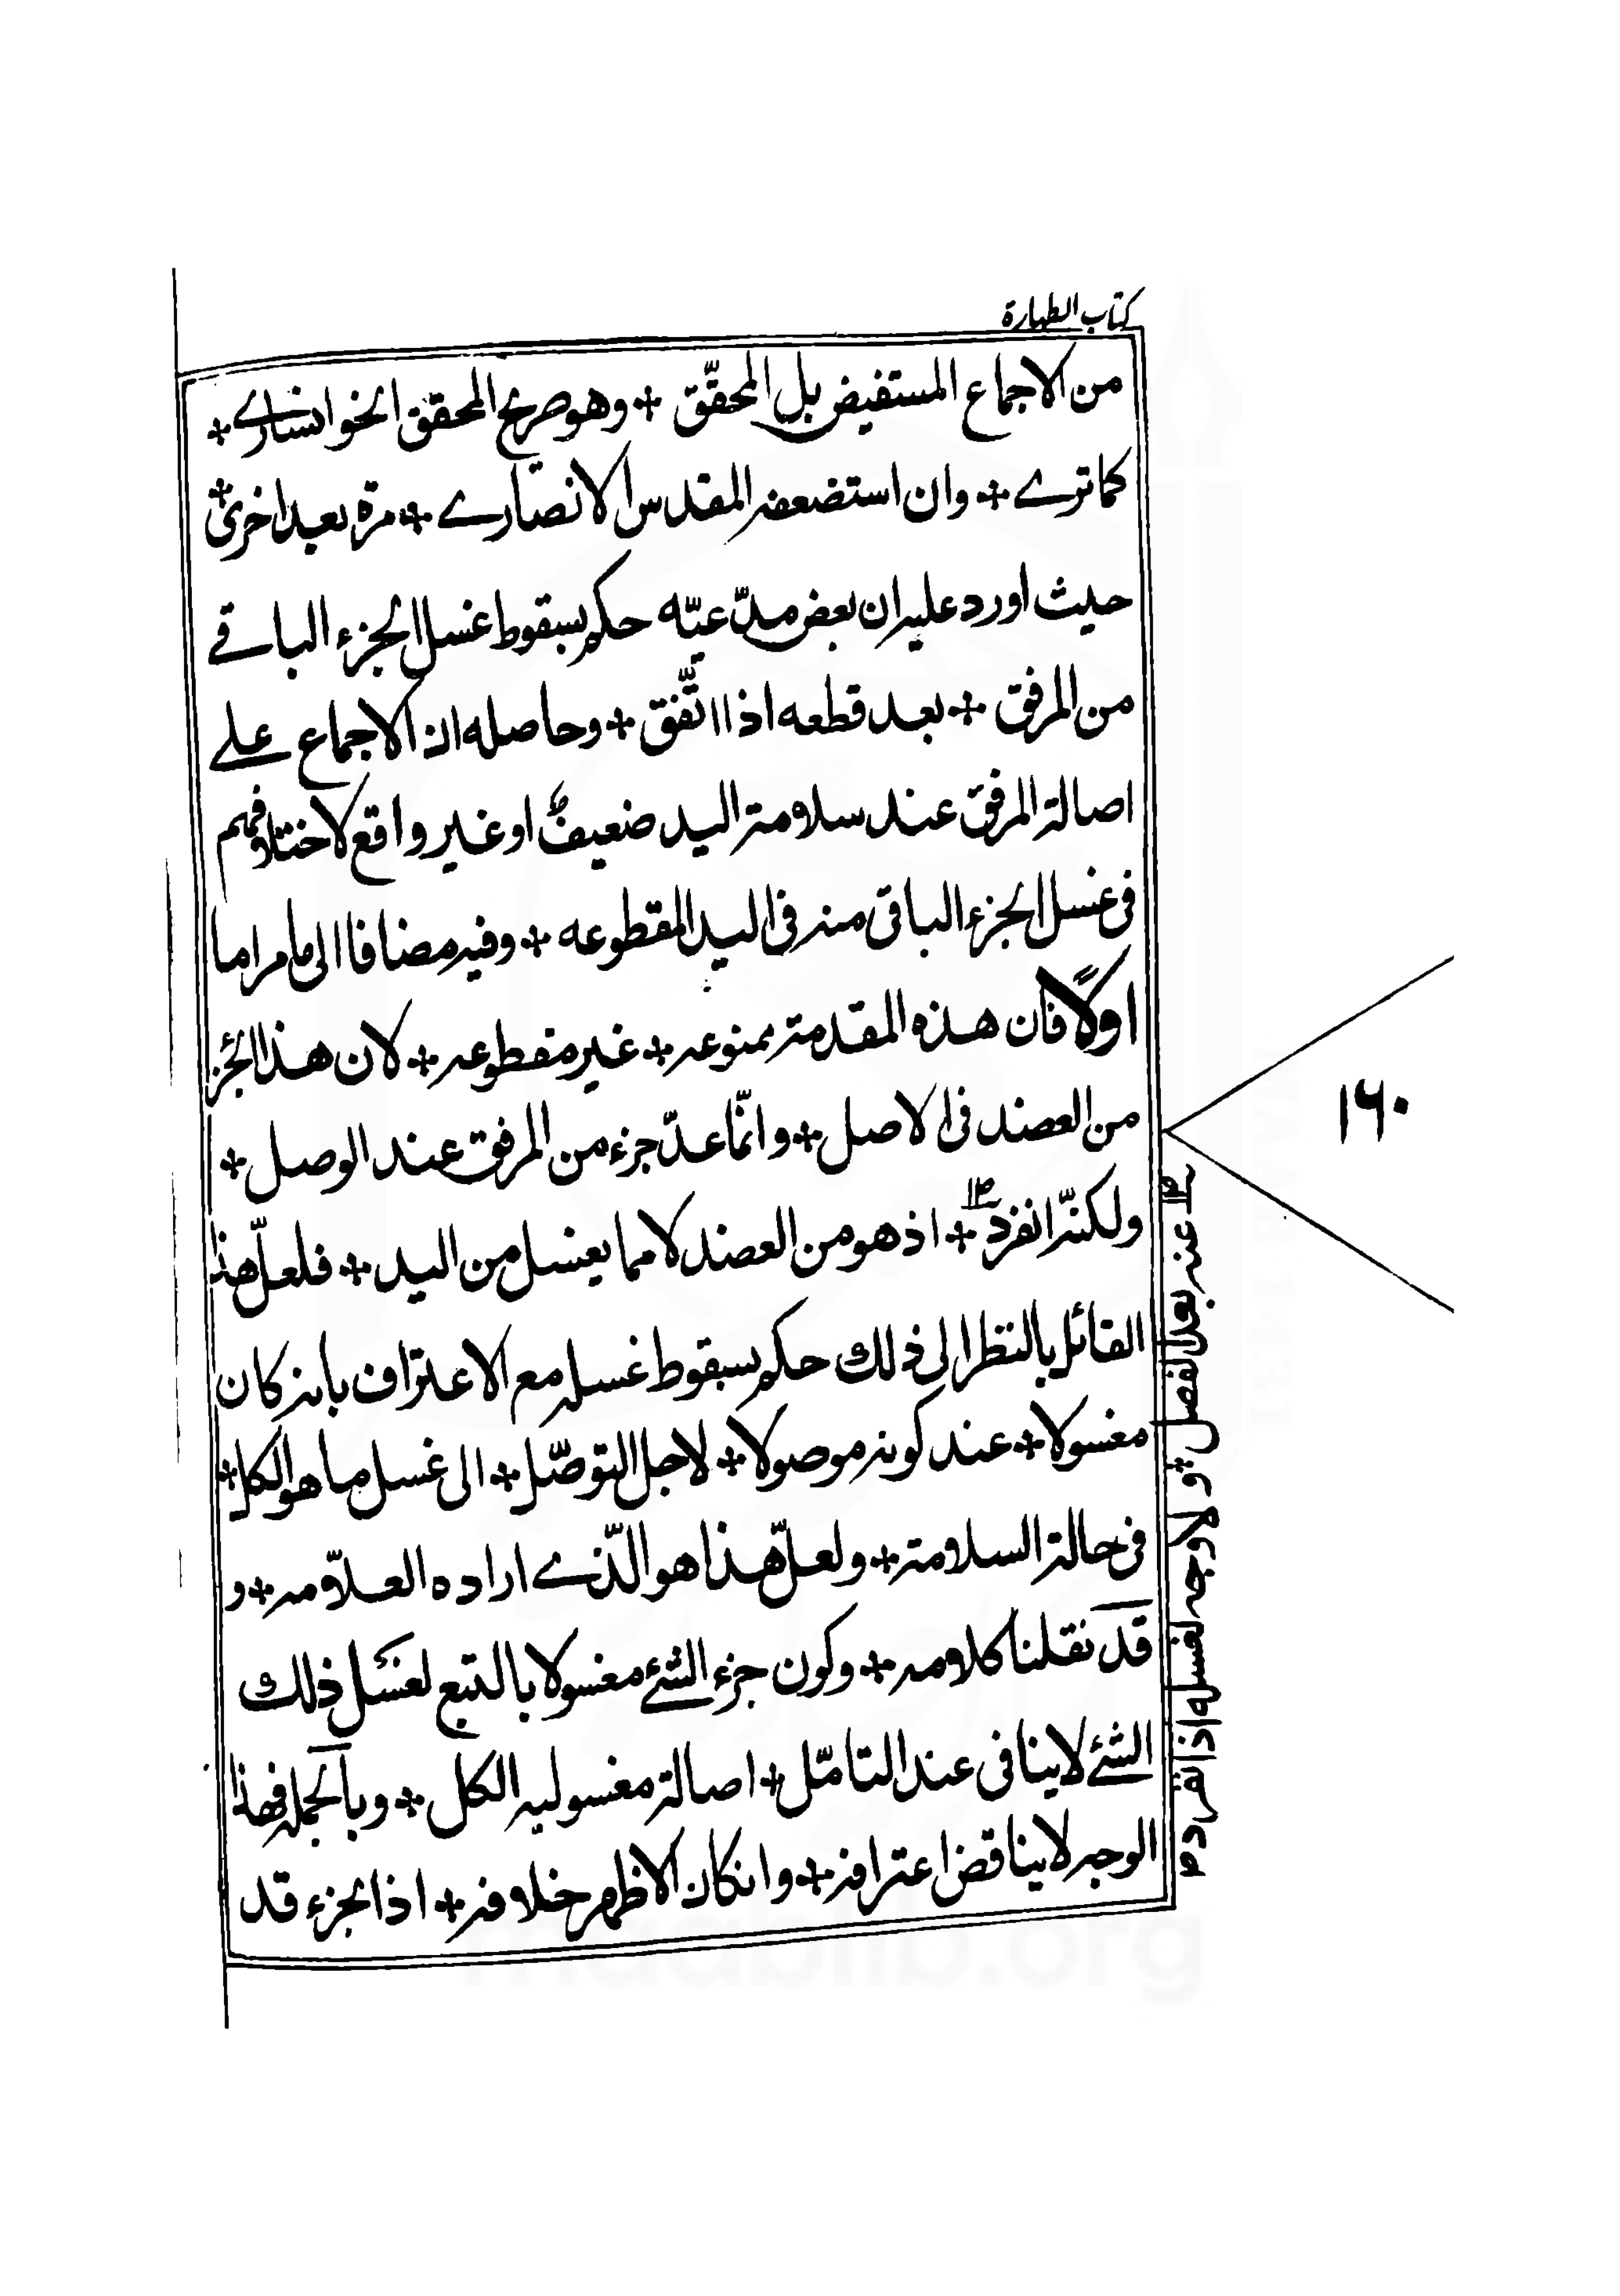 كتاب الطهارة
من الاجماع المستفيض بل المحقّق + وهو صريح المحقق الخوانسارے +
كما ترے + وان استضعفه المقدس الانصارے + مرة بعد اخرىٰ +
حيث اورد عليه ان بعض مدّعيّه حكم بسقوط غسل الجزء الباقے
من المرفق + بعد قطعه اذا اتّفق + وحاصله ان الاجماع علے
اصالة المرفق عند سلامة اليد ضعيف او غير واقع لاختلافهم
فى غسل الجزء الباقى منه فى اليد المقطوعه + وفيه مضافا الى ما مر اما
اولًا فان هذه المقدمة ممنوعه + غير مقطوعه + لان هذا الجزء
من العضد فى الاصل + وانّما عدّ جزء من المرفق عند الوصل +
ولكنّه انفرد + اذ هو من العضد لا مما يغسل من اليد + فلعلّ هذا
القائل بالنظر الى ذلك حكم بسقوط غسله مع الاعتراف بانه كان
مغسولا + عند كونه موصولا + لاجل التوصّل + الى غسل ما هو الكل +
فى حالة السلامة + ولعلّ هذا هو الّذے اراده العلّامه + و
قد نقلنا كلامه + وكون جزء الشئ مغسولا بالتبع لغسل ذلك
الشئ لا ينافى عند التامّل + اصالة مغسوليه الكل + وبالجمله فهذا
الوجه لا يناقض اعترافه + وانكان الاظهر خلافه + اذ الجزء قد
عنه بعد الفصل + ولا وجه لغسله اذا انفرد م
١٦٠